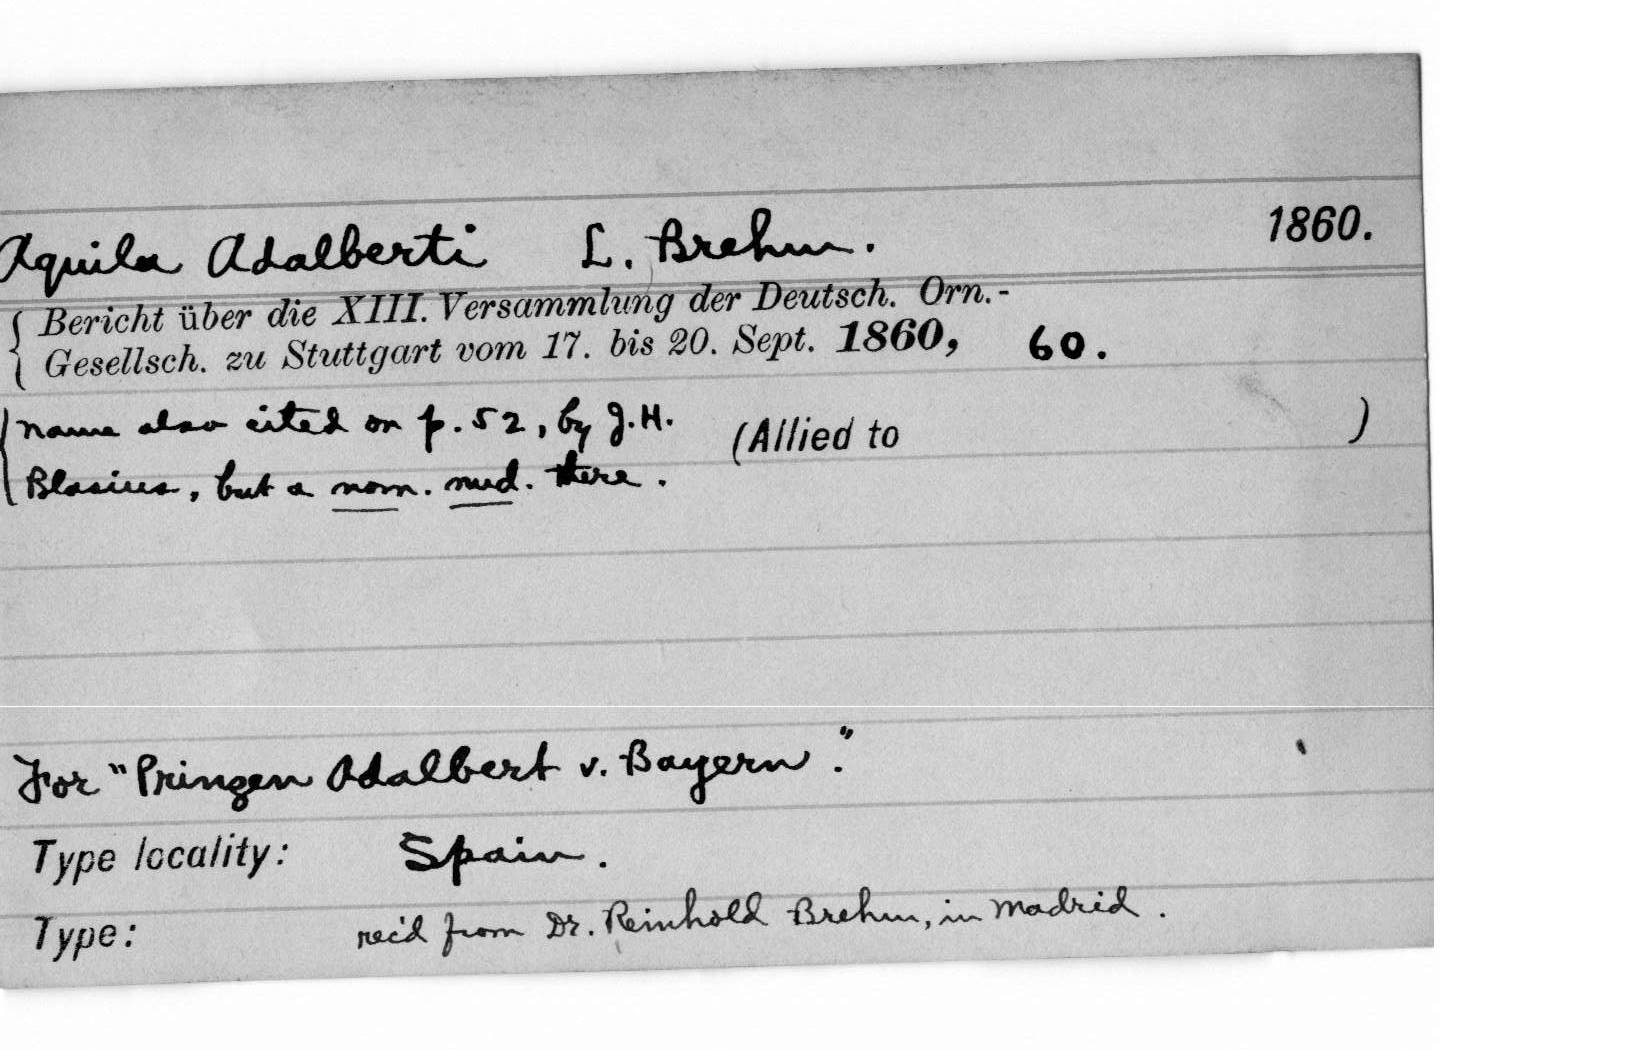 Aquila Adalberti L. Brehm. 1860.
Bericht über die XIII. Versammlung der Deutsch. Orn.-
Gesellsch. zu Stuttgart vom 17. bis 20. Sept. 1860, 60.
name also cited on p. 52, by J.H.
Blasius, but a nom. nud. there.
(Allied to )
For "Prinzen Adalbert v. Bayern."
Type locality: Spain.
Type: rec'd from Dr. Reinhold Brehm, in Madrid.